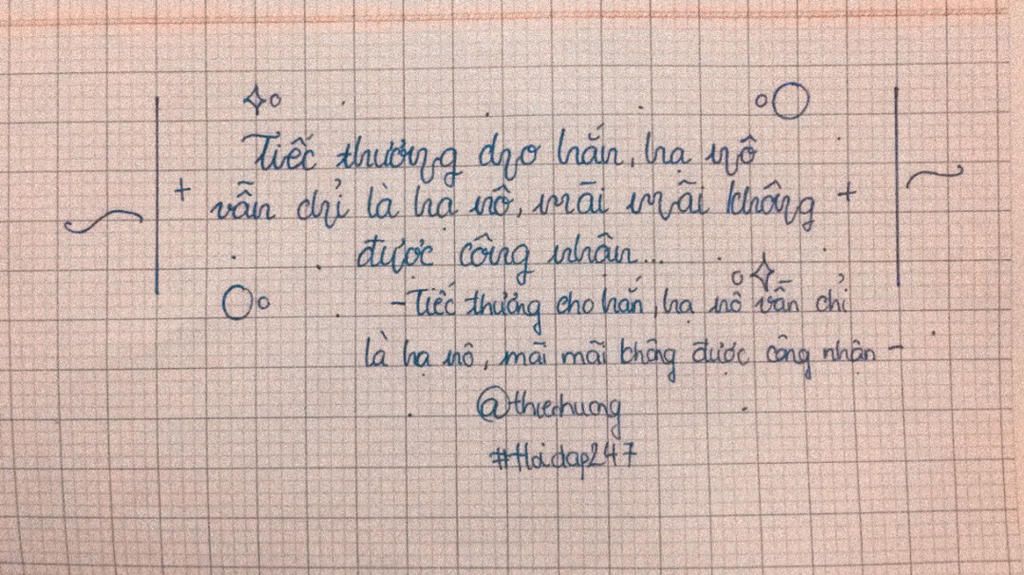 Tiếc thương cho hắn, hạ nô
vẫn chỉ là hạ nô, mãi mãi không
được công nhận...
-Tiếc thương cho hắn, hạ nô vẫn chỉ
là hạ nô, mãi mãi không được công nhận -
@thuchuong
#Hoidap247